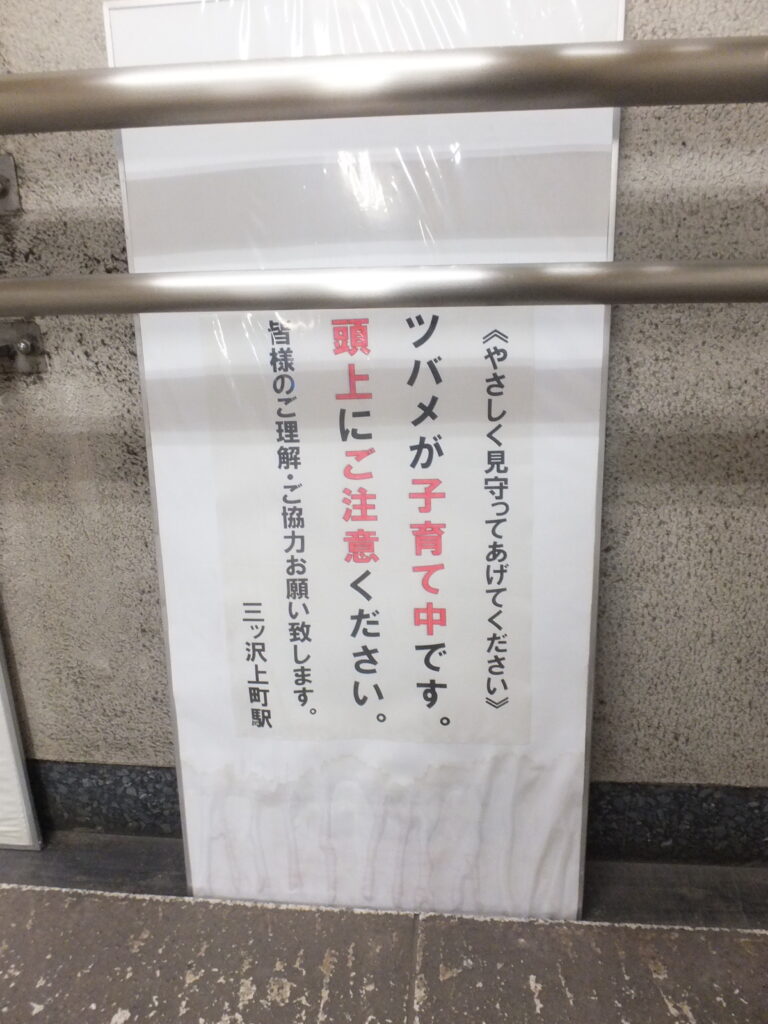 《やさしく見守ってあげてください》
ツバメが子育て中です。
頭上にご注意ください。
皆様のご理解・ご協力お願い致します。
三ッ沢上町駅